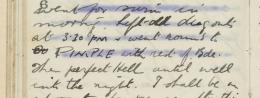 Went for swim in
morning. Left old dug outs
at 3.30 pm & went round to
PIMPLE with rest of Bde.
The perfect Hell until well
into the night. I shall be in